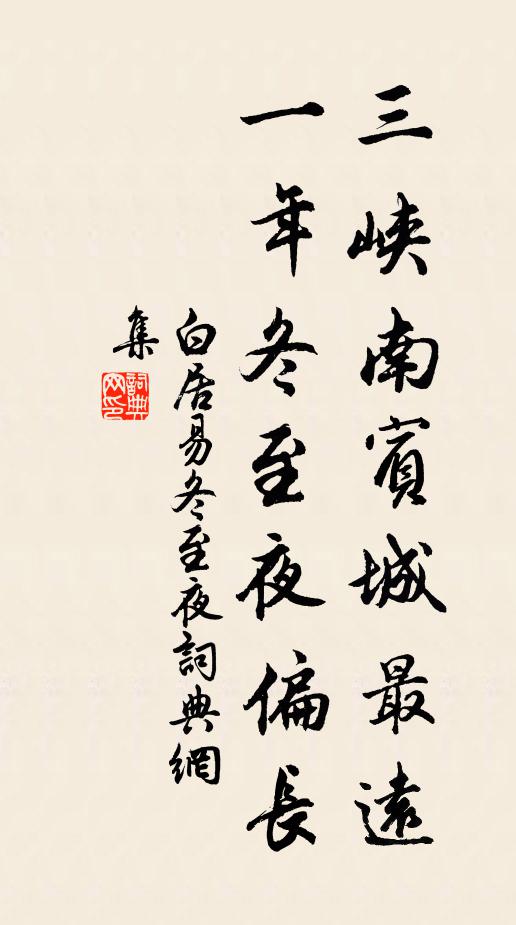 三峽南賓城最遠
一年冬至夜偏長
白居易冬至夜詞典網
集
詞典
网印